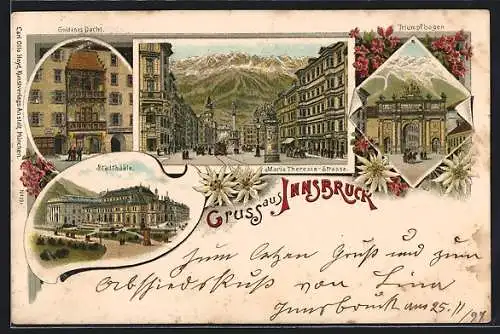 Goldenes Dachl.
Triumpfbogen
Carl Otto Hayd, Kunstverlags-Anstalt, München.
Maria Theresia-Strasse.
Stadtsäle.
Gruss aus Innsbruck
Zum letzen Gruß und zum
Abschiedskuß von Lina
Innsbruck am 25. 11/97